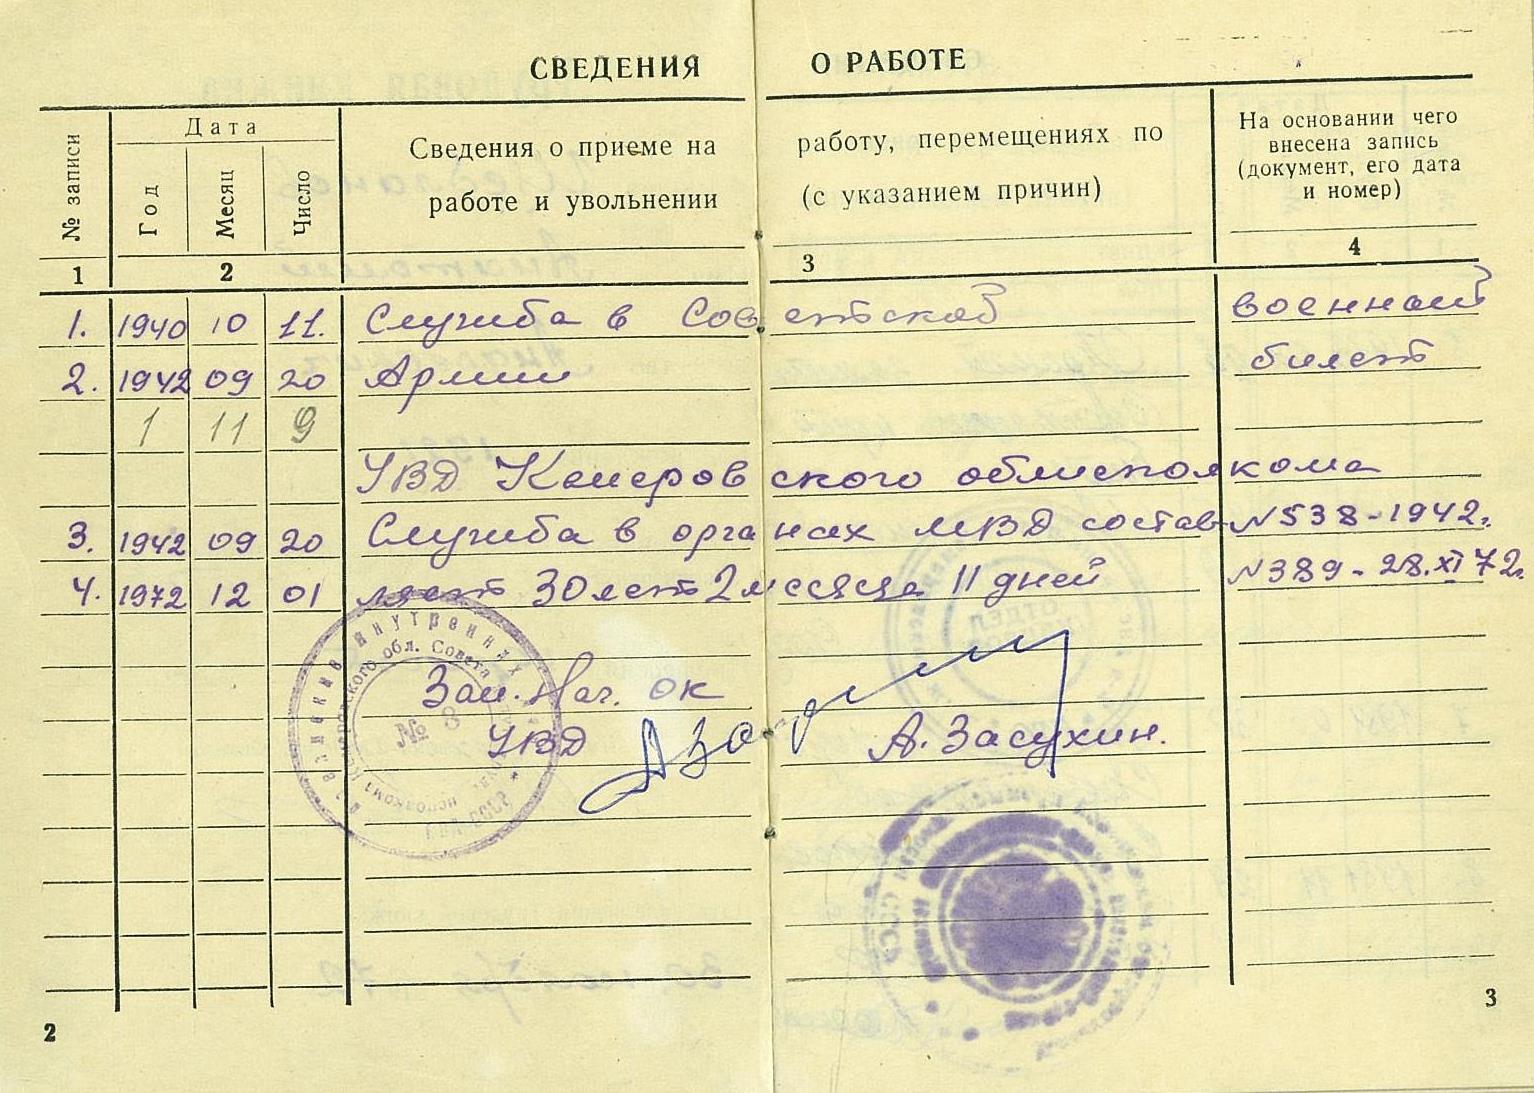 СВЕДЕНИЯ О РАБОТЕ
№ записи
Дата
Год
Месяц
Число
Сведения о приеме на работу, перемещениях по
работе и увольнении (с указанием причин)
На основании чего
внесена запись
(документ, его дата
и номер)
1 2 3 4
1. 1940 10 11. Служба в Советской военный
2. 1942 09 20 Армии билет
1 11 9
УВД Кемеровского облисполкома
3. 1942 09 20 Служба в органах МВД состав- №538-1942.
4. 1972 12 01 ляет 30 лет 2 месяца 11 дней №389-28.XI 72г.
Зам. Нач. ОК
УВД А. Засухин.
внутренних
обл. Совета
№ 8
ОТДЕЛ
2
3